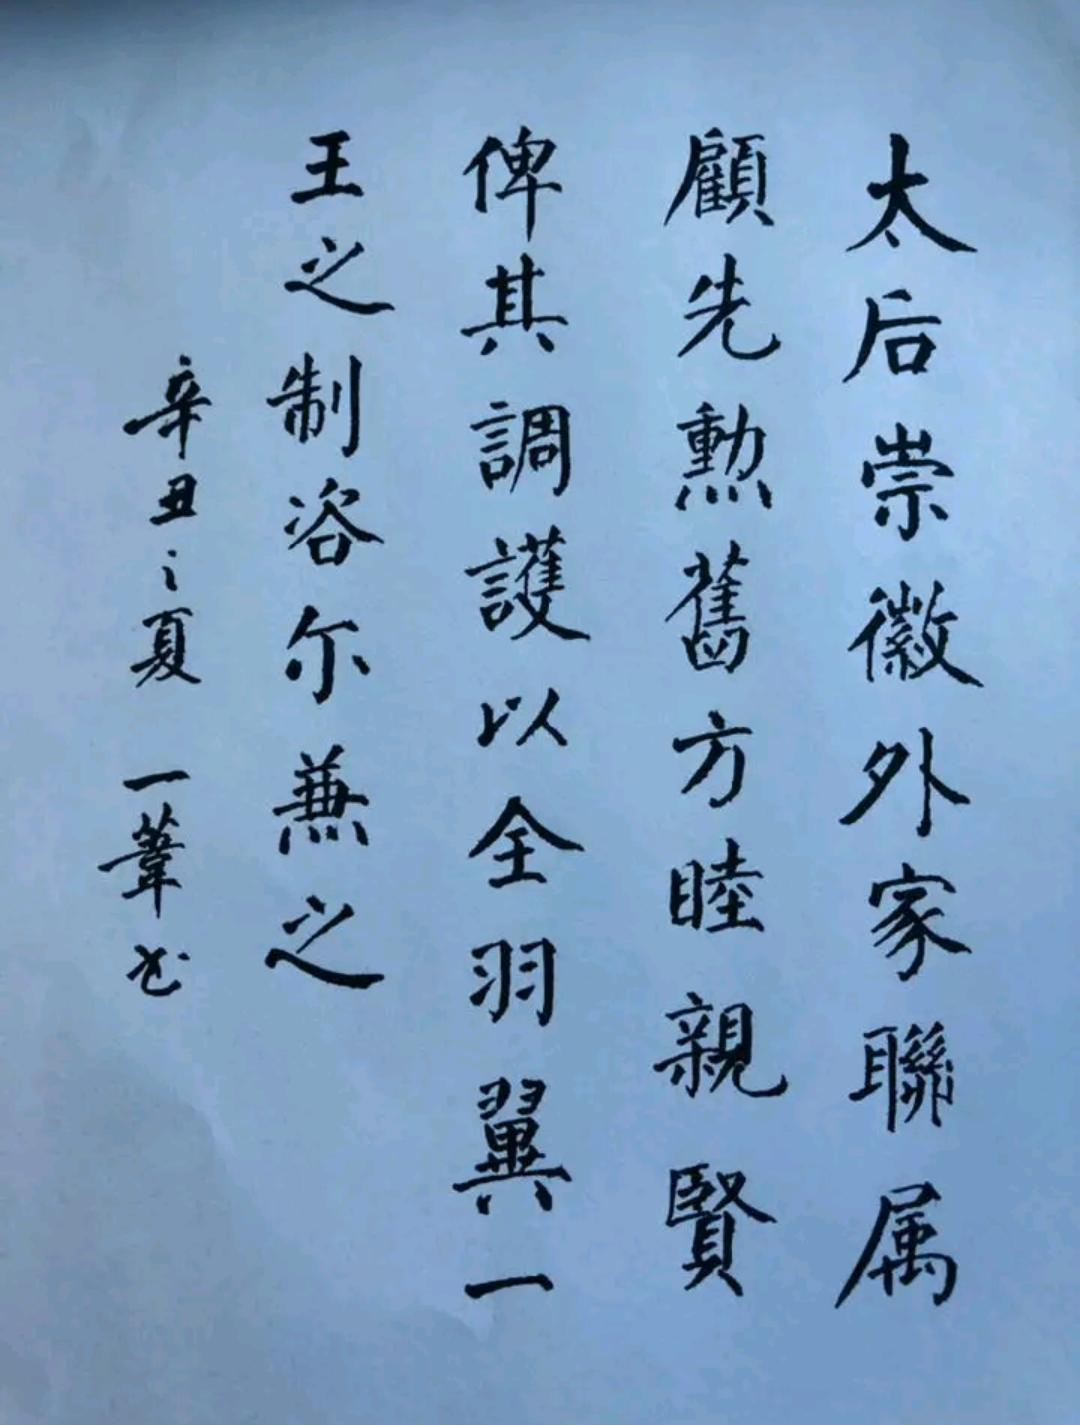 太后崇徽外家聯属
顧先勲舊方睦親賢
俾其調護以全羽翼一
王之制咨尔兼之
辛丑之夏 一葦书